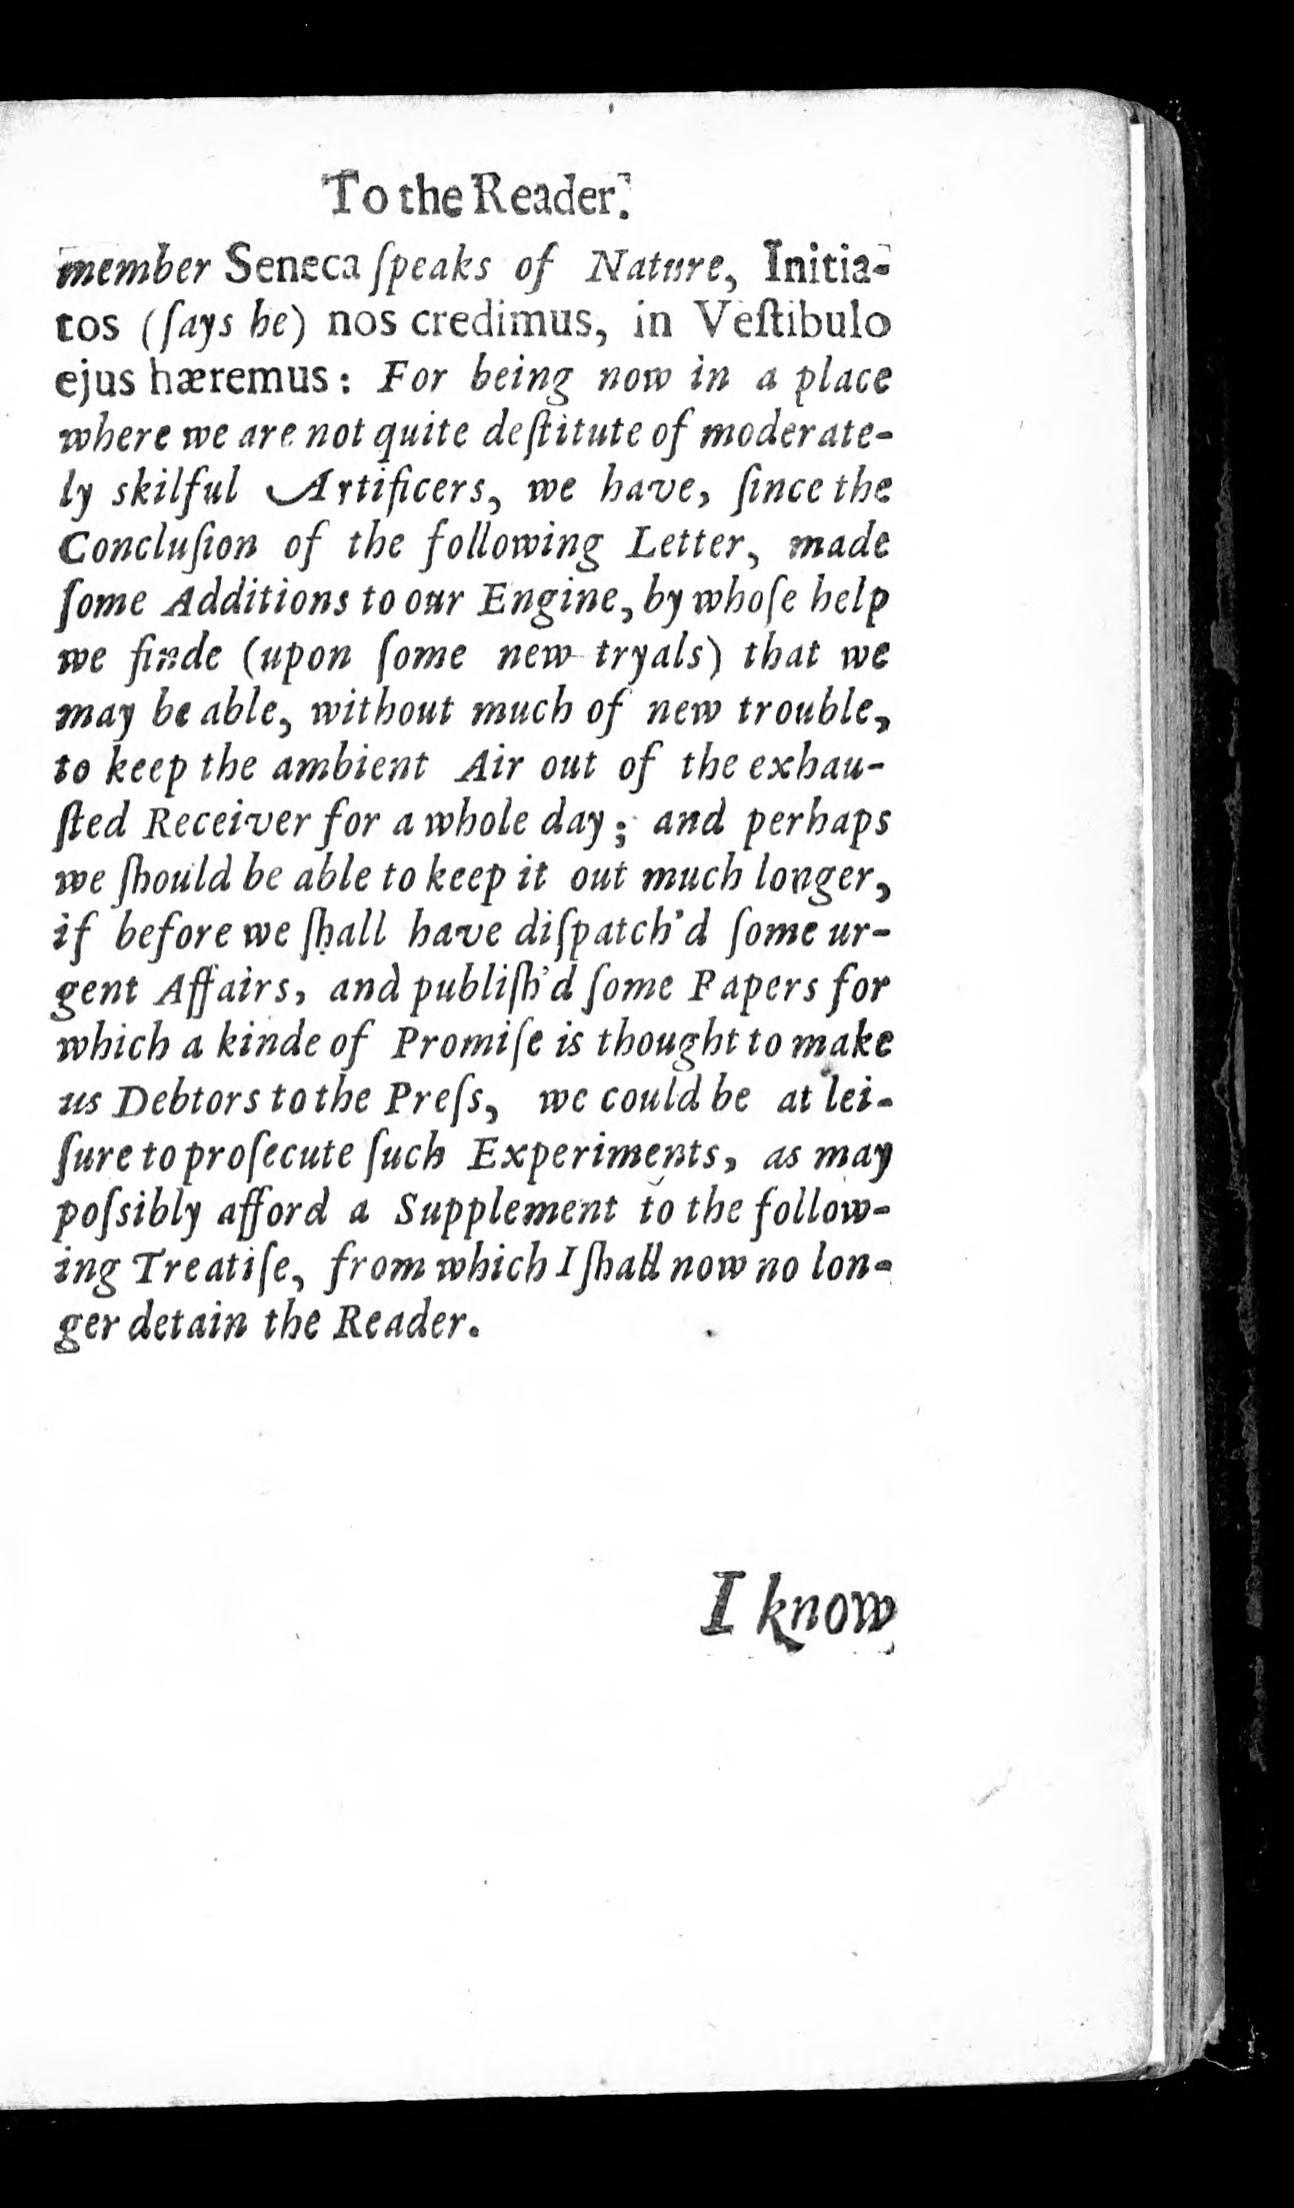 To the Reader.
member Seneca ſpeaks of Nature, Initia-
tos (ſays he) nos credimus, in Veſtibulo
ejus hæremus: For being now in a place
where we are not quite deſtitute of moderate-
ly skilful Artificers, we have, ſince the
Concluſion of the following Letter, made
ſome Additions to our Engine, by whoſe help
we finde (upon ſome new tryals) that we
may be able, without much of new trouble,
to keep the ambient Air out of the exhau-
ſted Receiver for a whole day; and perhaps
we ſhould be able to keep it out much longer,
if before we ſhall have diſpatch'd ſome ur-
gent Affairs, and publiſh'd ſome Papers for
which a kinde of Promiſe is thought to make
us Debtors to the Preſs, we could be at lei-
ſure to proſecute ſuch Experiments, as may
poſsibly afford a Supplement to the follow-
ing Treatiſe, from which I ſhall now no lon-
ger detain the Reader.
I know